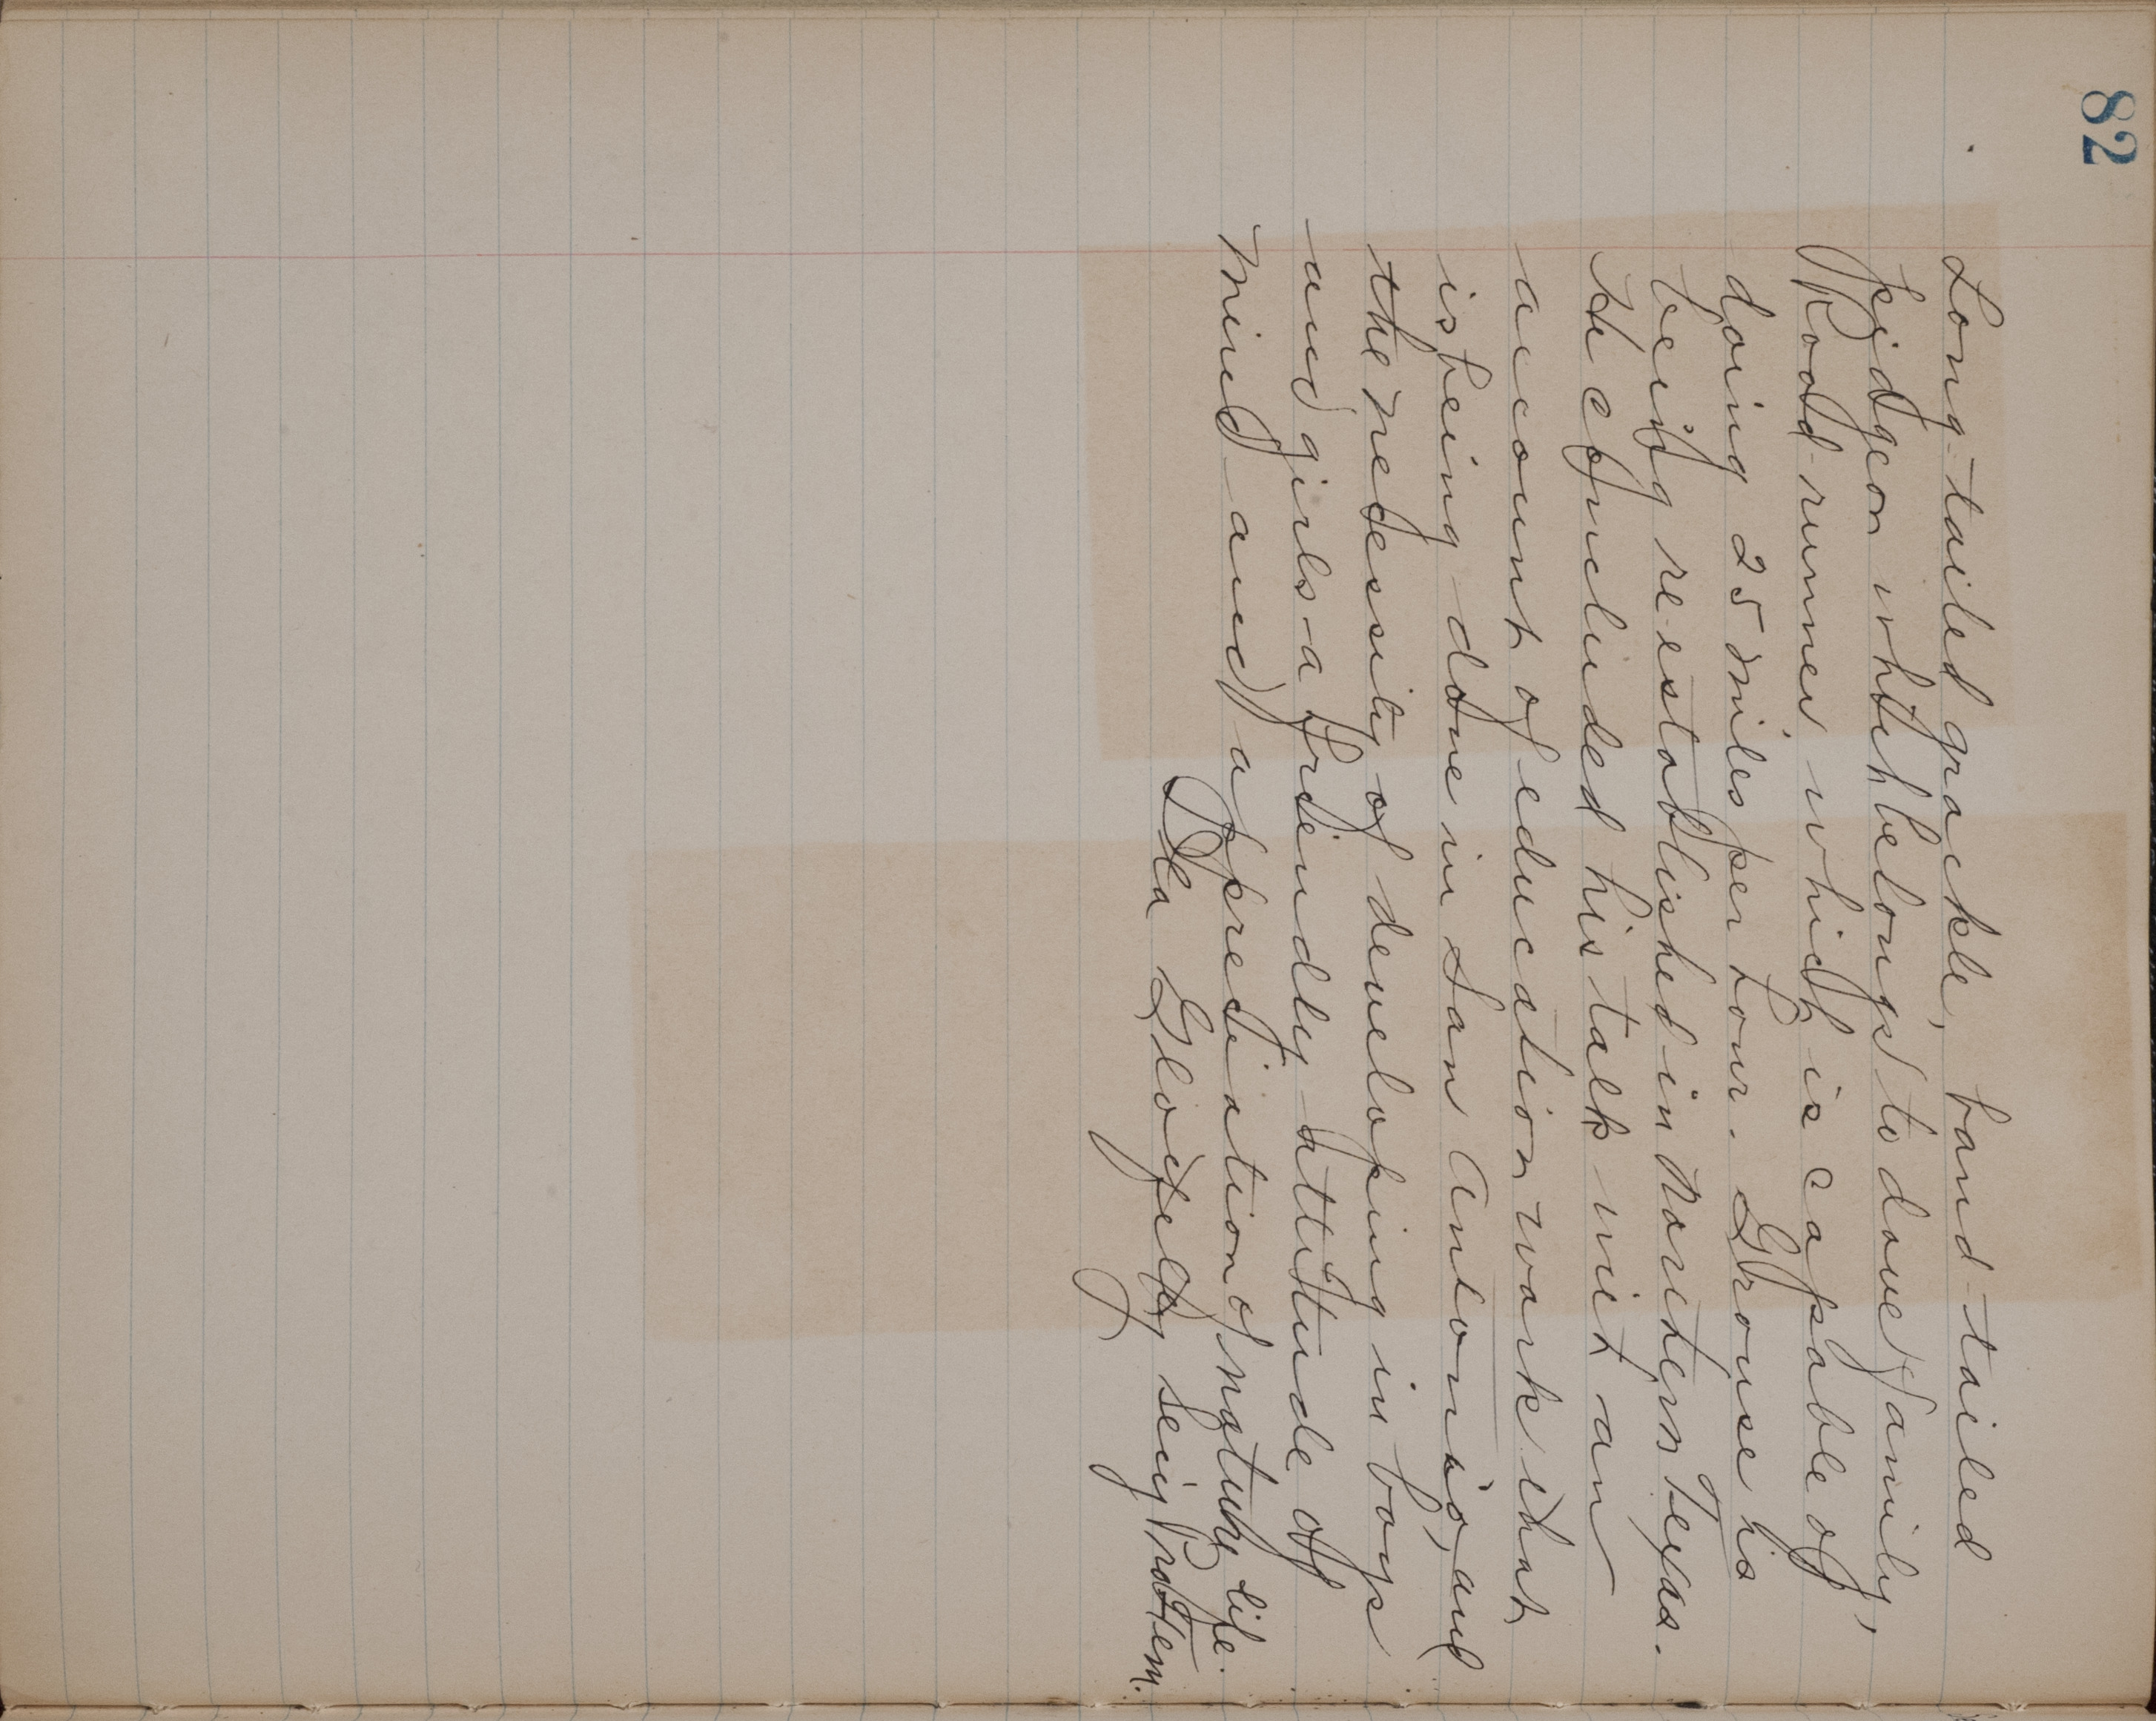 82
Long-tailed grackle, band-tailed
pidgeon which belongs to dove family,
Road-runner which is capable of
doing 25 miles per hour. Grouse is
being re-established in Northern Texas.
He concluded his talk with an
account of education work that
is being done in San Antonio, and
the necessity of developing in boys
and girls - a friendly attitude of
mind - and appreciation of nature life.
Ila Secy Pro Tem.